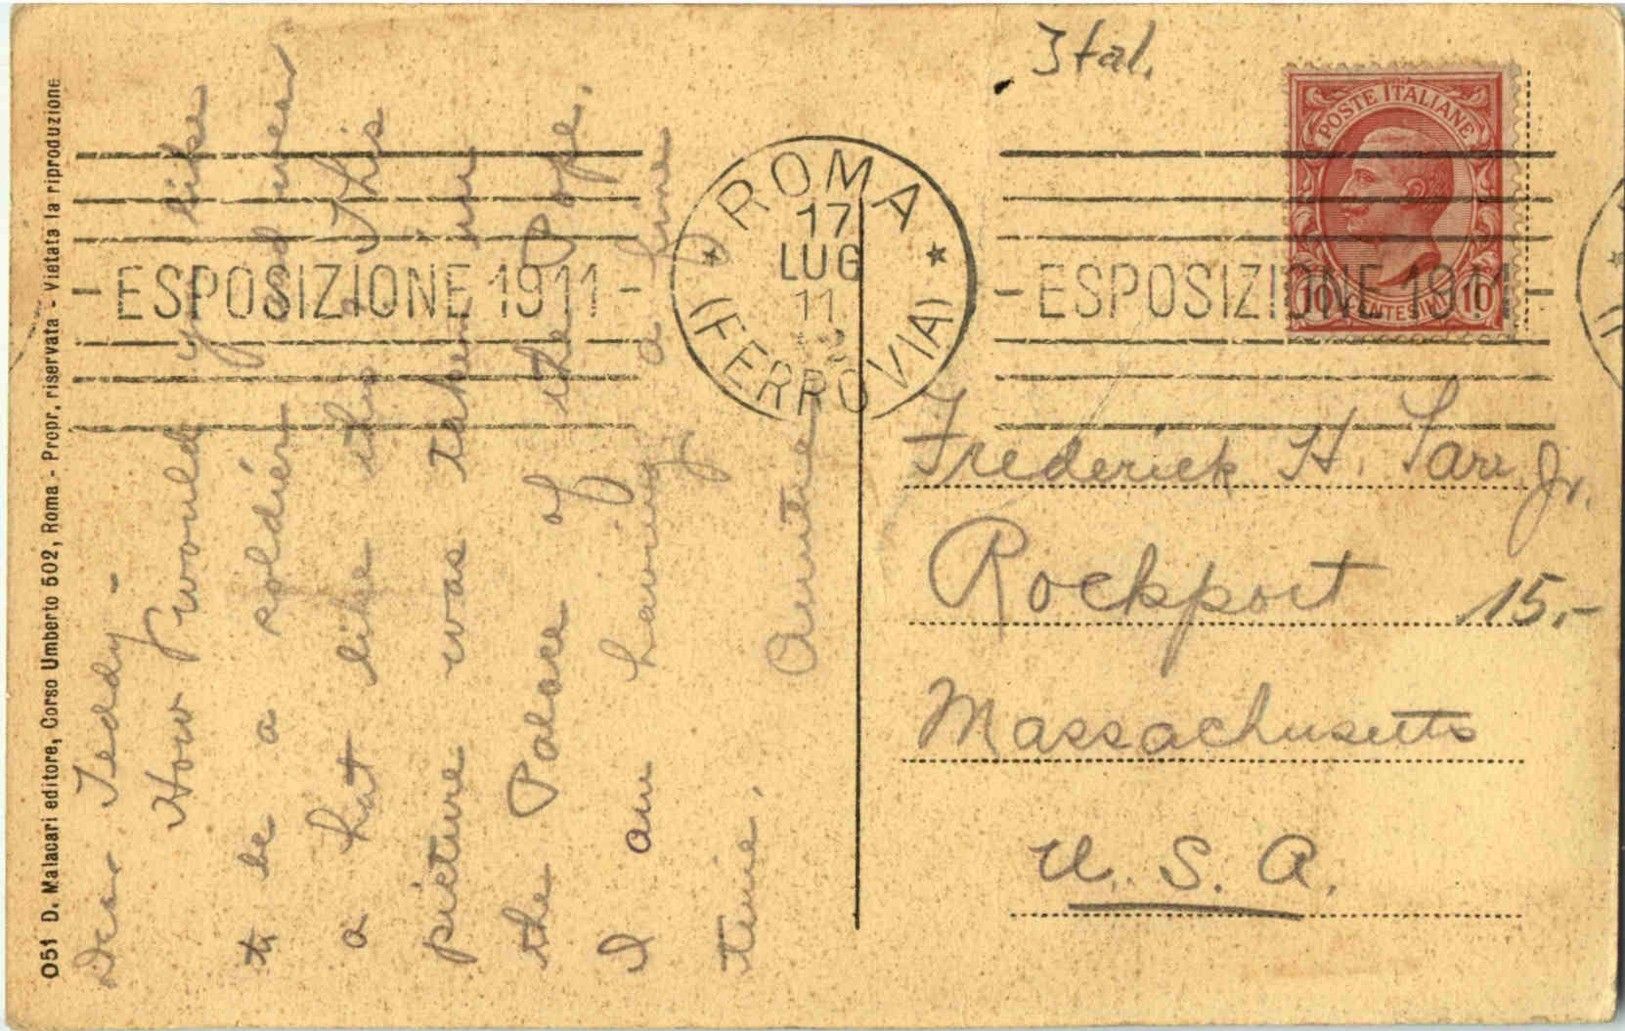 051 D. Malacari editore, Corso Umberto 502, Roma - Propr. riservata - Vietata la riproduzione
Dear Teddy -
How would you like
to be a soldier and wear
a hat like this? This
picture was taken in
the Palace of the Pope.
I am having a fine
time.
Auntie
- ESPOSIZIONE 1911 -
ROMA
17
LUG
11
(FERROVIA)
- ESPOSIZIONE 1911 -
Ital.
POSTE ITALIANE
10 CENTESIMI 10
Frederick H. Tarr Jr.
Rockport
15,-
Massachusetts
U. S. A.